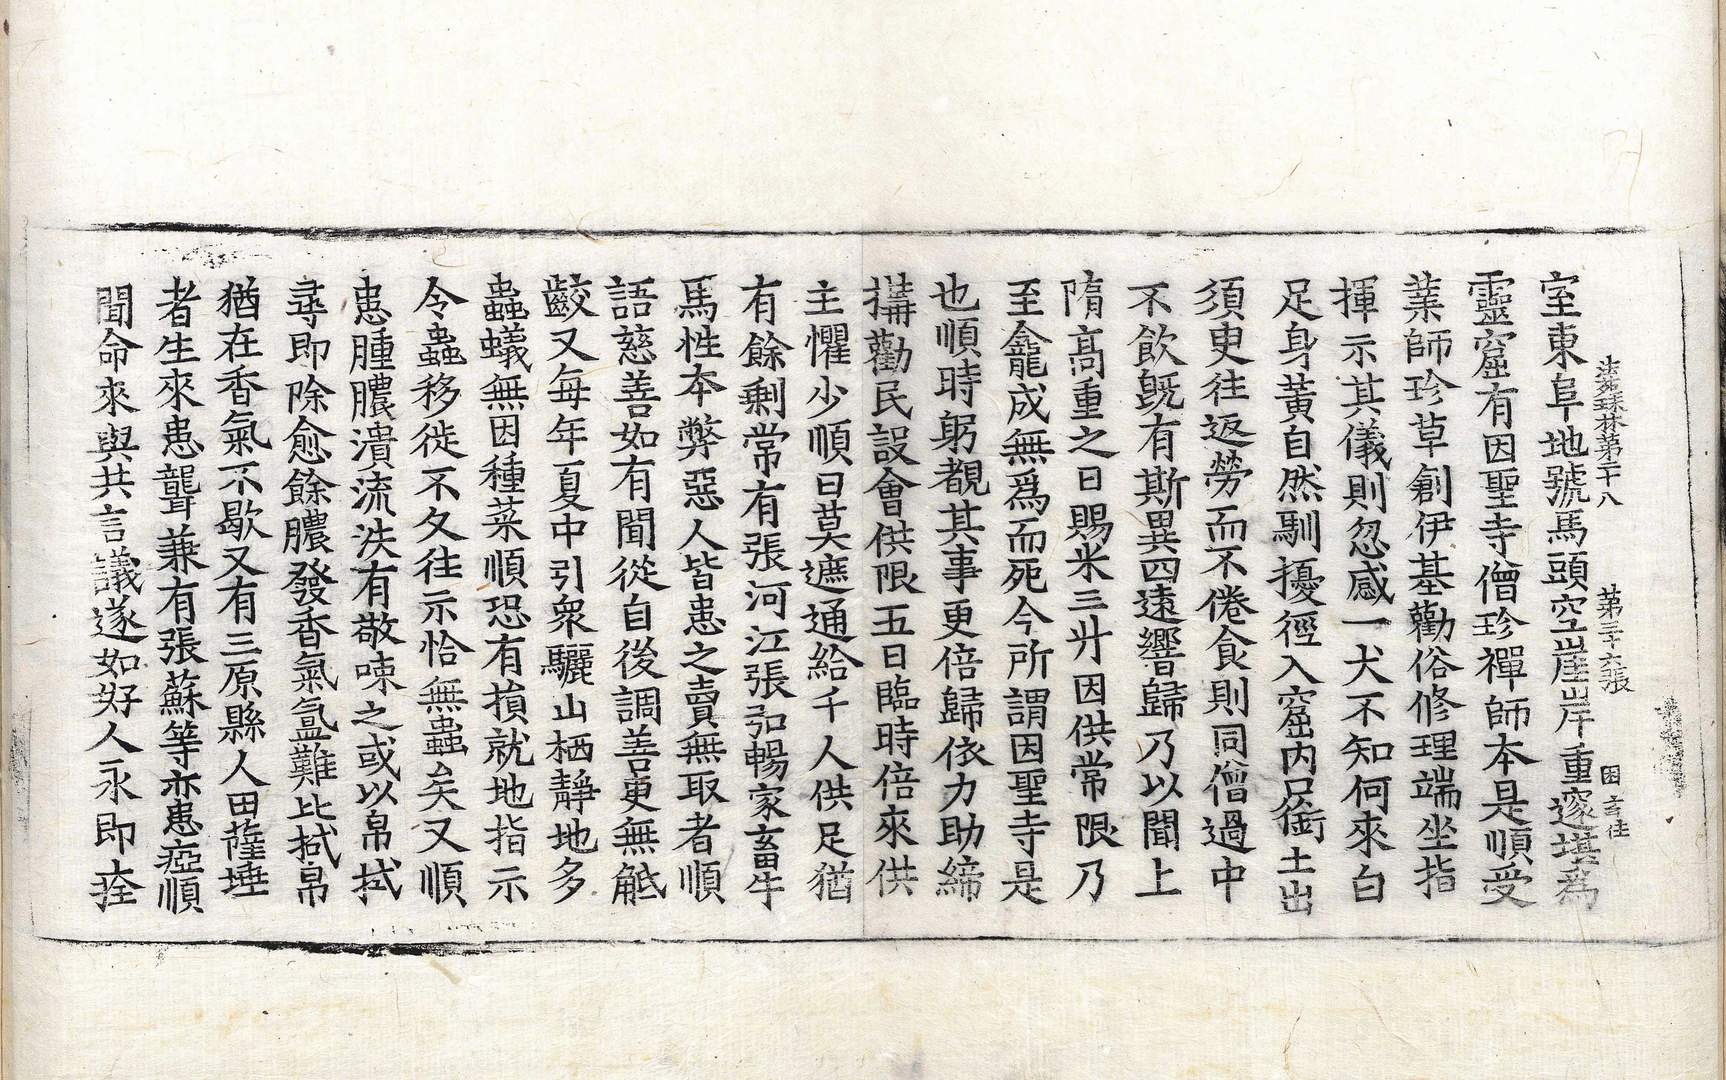 室東阜地號馬頭空崖岸重邃堪爲
法苑珠林第二十八 第三十六張
靈窟有因聖寺僧珍禪師本是順受
業師珍草創伊基勸俗修理端坐指
揮示其儀則忽感一犬不知何來白
足身黃自然馴擾徑入窟內口銜土出
須臾往返勞而不倦食則同僧過中
不飲旣有斯異四遠響歸乃以聞上
隋高重之日賜米三升因供常限乃
至龕成無爲而死今所謂因聖寺是
也順時躬覩其事更倍歸依力助締
搆勸民設會供限五百臨時倍來供
主懼少順曰莫遮通給千人供足猶
有餘剩常有張河江張弘暢家畜牛
馬性本弊惡人皆患之賣無取者順
語慈善如有聞從自後調善更無觝
齩又每年夏中引衆驪山栖靜地多
蟲蟻無因種菜順恐有損就地指示
令蟲移徙不久往示恰無蟲矣又順
患腫膿潰流泆有敬㖨之或以帛拭
尋即除愈餘膿發香氣氳難比拭帛
猶在香氣不歇又有三原縣人田薩埵
者生來患聾兼有張蘇等亦患瘂順
聞命來與共言議遂如好人永即痊